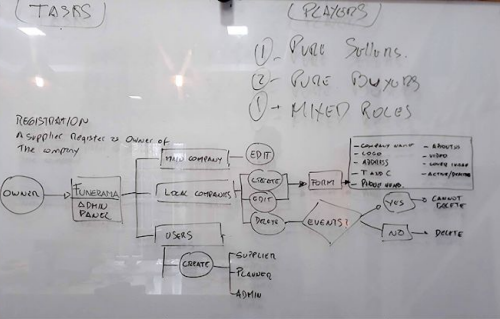 TASKS
PLAYERS
① - PURE SELLERS.
② - PURE BUYERS
① - MIXED ROLES
REGISTRATION
A supplier Register as owner of
The company
OWNER
FUNERAMA
ADMIN
PANEL
MAIN COMPANY
EDIT
LOCAL COMPANIES
CREATE
EDIT
DELETE
FORM
- COMPANY NAME
- LOGO
- ADDRESS
- T AND C
- VIDEO
- COVER IMAGE
EVENTS?
YES
CANNOT
DELETE
NO
DELETE
USERS
CREATE
SUPPLIER
PLANNER
ADMIN